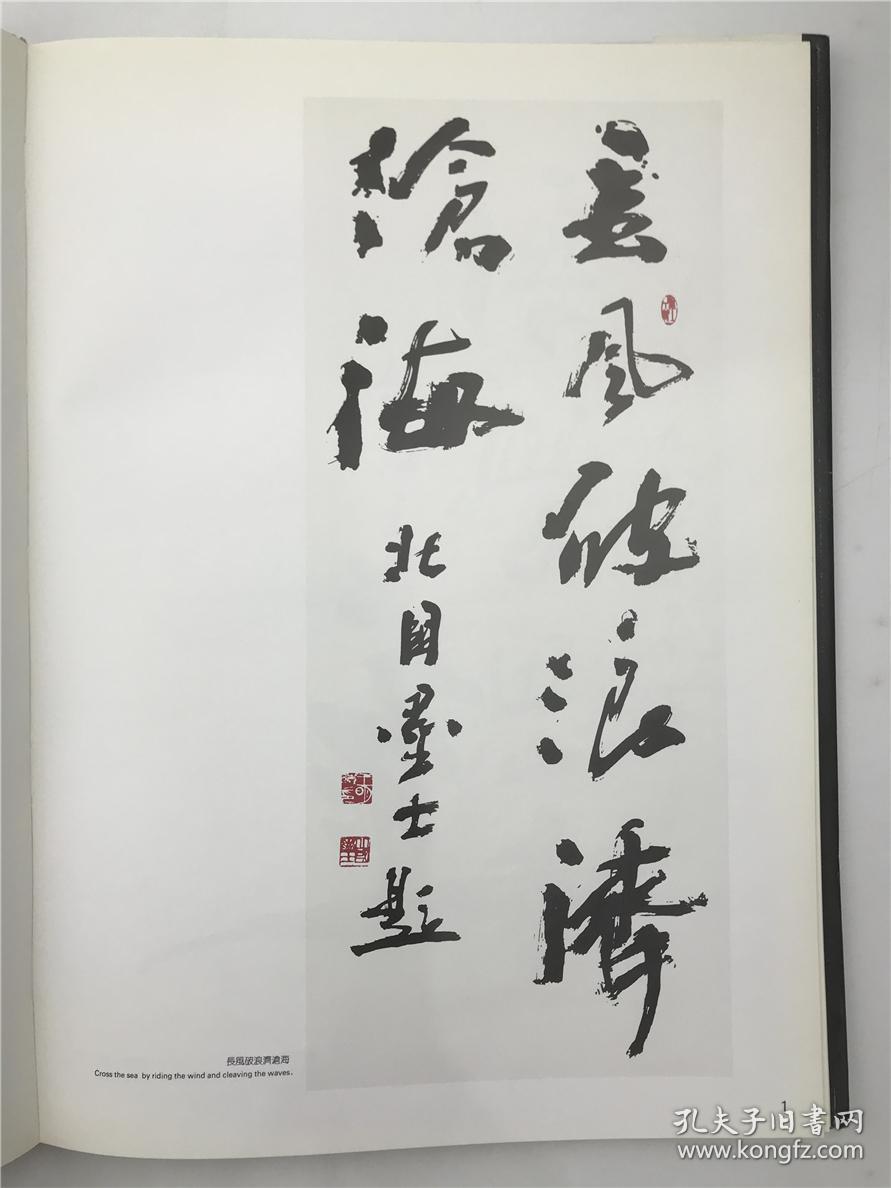 長風破浪濟
滄海
北國墨士題
長風破浪濟滄海
Cross the sea by riding the wind and cleaving the waves.
1
孔夫子旧书网
www.kongfz.com